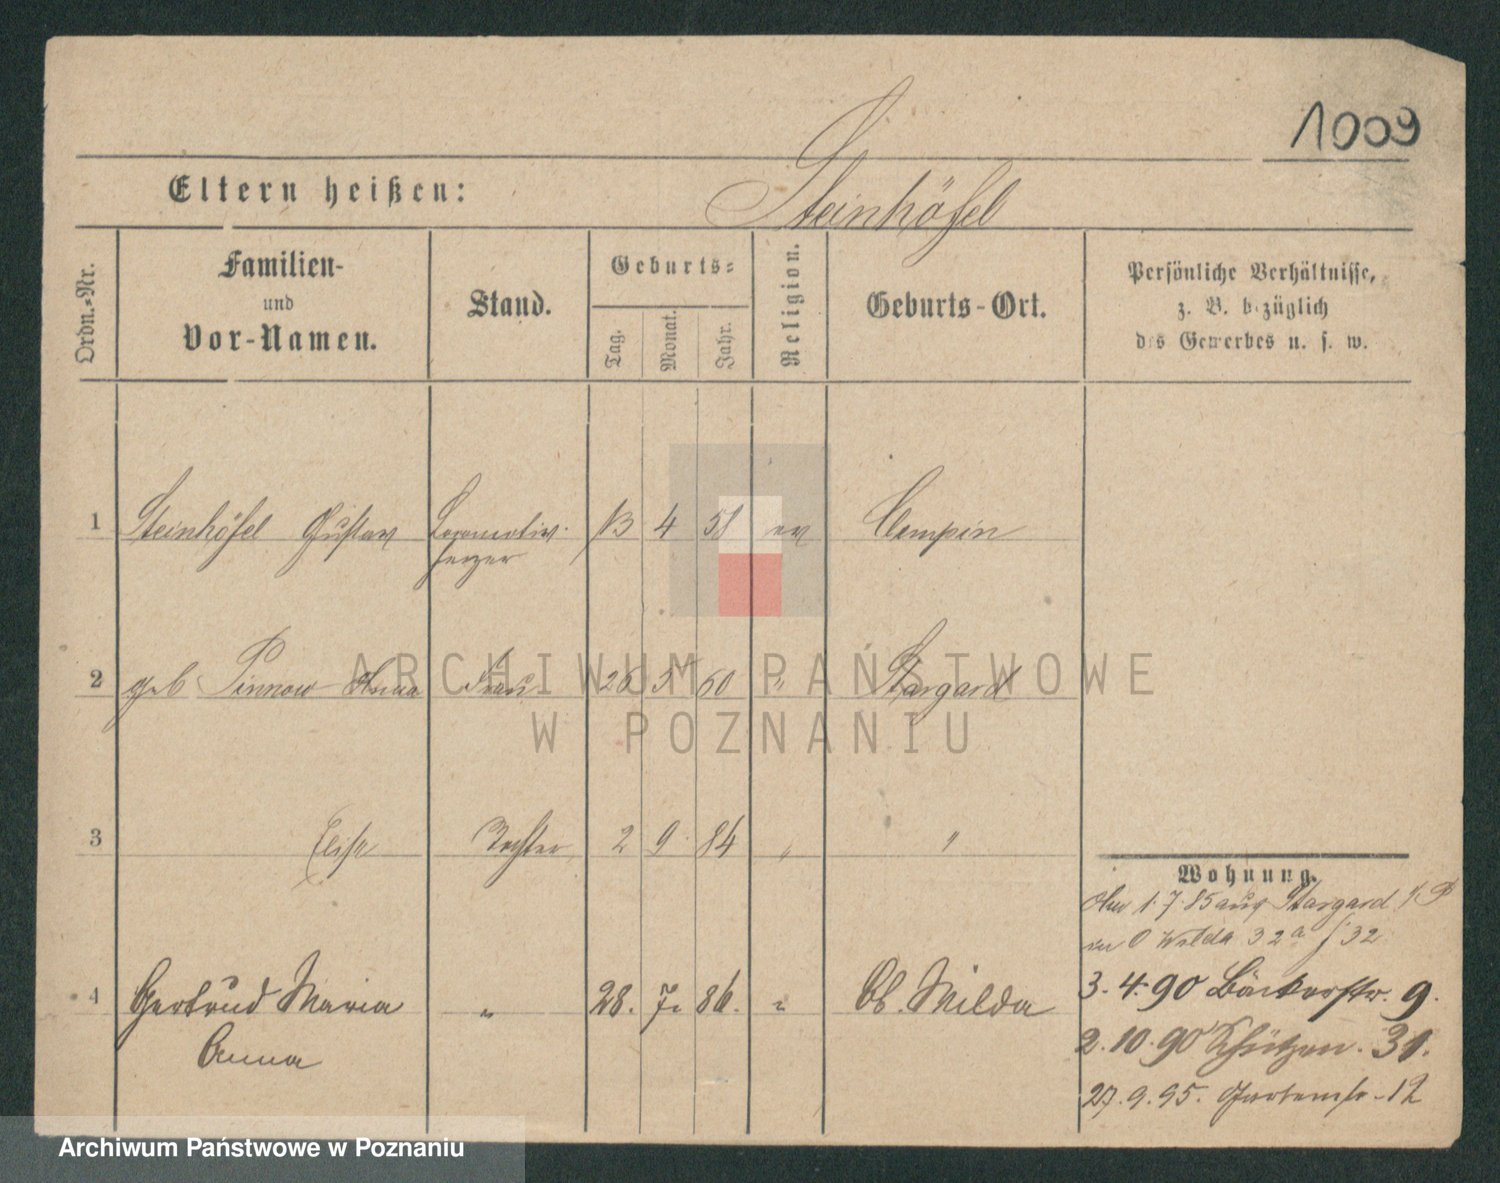 1009
Eltern heißen:
Steinhöfel
Ordn.-Nr.
Familien-
und
Vor-Namen.
Stand.
Geburts-
Tag.
Monat.
Jahr.
Religion.
Geburts-Ort.
Persönliche Verhältnisse,
z. B. bezüglich
des Gewerbes u. s. w.
1 Steinhöfel Gustav Locomotiv- 13 4 58 ev Czempin
heizer
2 geb Pinnow Anna Frau 26 5 60 " Stargard
ARCHIWUM PAŃSTWOWE
W POZNANIU
3 Elise Tochter 2 9 84 " "
Wohnung.
1.7.85 aus Stargard i/P
in O Wilda 32a / 32
4 Gertrud Maria " 28. 7. 86. " Ob. Wilda
Anna
3.4.90 Bäckerstr. 9.
2.10.90 Schützen. 31.
27.9.95. Gartenstr. 12
Archiwum Państwowe w Poznaniu